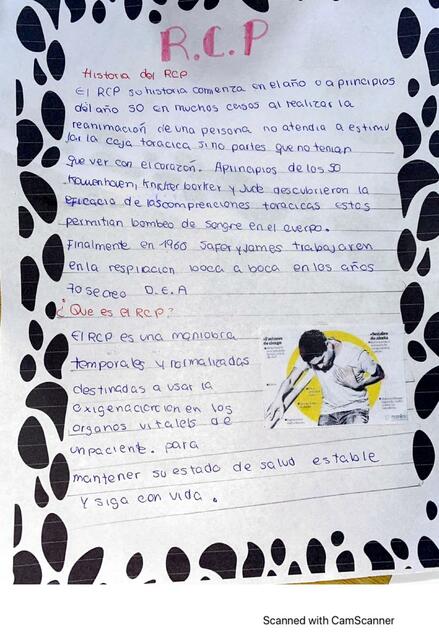 R.C.P
Historia del RCP
El RCP su historia comienza en el año o a principios
del año 50 en muchos casos al realizar la
reanimación de una persona no atendia a estimu
lar la caja toracica si no partes que no tenian
que ver con el corazón. A principios de los 50
y Jude descubrieron la
eficacia de las comprenciones toracicas estas
permitian bombeo de sangre en el cuerpo.
Finalmente en 1960 Safer y James trabajaron
en la respiracion boca a boca en los años
70 se creo D.E.A
¿Que es el RCP?
El RCP es una maniobra
temporales y normalizadas
destinadas a usar la
oxigenacicrion en los
organos vitalels de
un paciente. para
mantener su estado de salud estable
y siga con vida.
Scanned with CamScanner